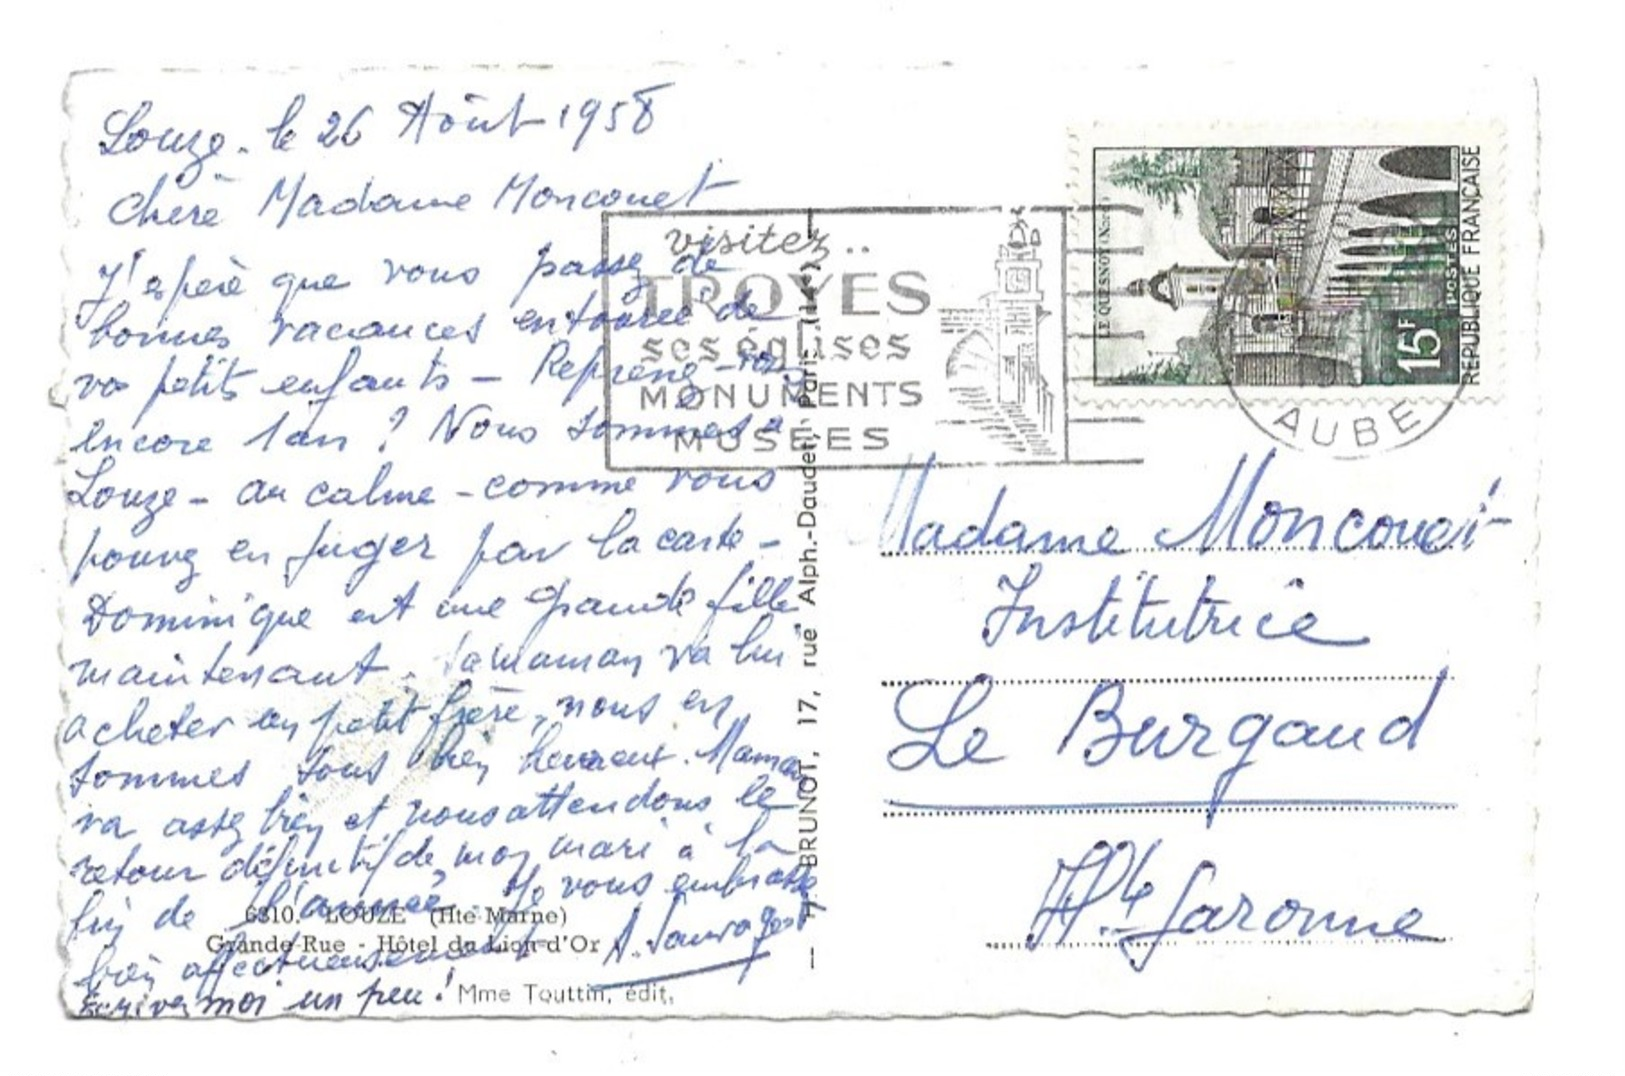 Louze - le 26 Août 1958
Chère Madame Moncouet
J'espère que vous passez de
bonnes vacances entourée de
vos petits enfants - Reprenez-vous
encore 1 an ? Nous sommes à
Louze - au calme - comme vous
pouvez en juger par la carte -
Dominique est une grande fille
maintenant. Sa maman va lui
acheter un petit frère, nous en
sommes tous bien heureux. Maman
va assez bien et nous attendons le
retour définitif de mon mari à la
fin de l'année. Je vous embrasse
bien affectueusement
Écrivez moi un peu !
6810. - LOUZE (Hte Marne)
Grande-Rue - Hôtel du Lion-d'Or
Mme Touttin, édit.
BRUNOT, 17, rue Alph.-Daudet, Paris (14e)
visitez..
TROYES
ses églises
MONUMENTS
MUSÉES
LE QUESNOY (Nord)
15F
POSTES
REPUBLIQUE FRANÇAISE
AUBE
Madame Moncouet
Institutrice
Le Burgaud
Hte Garonne